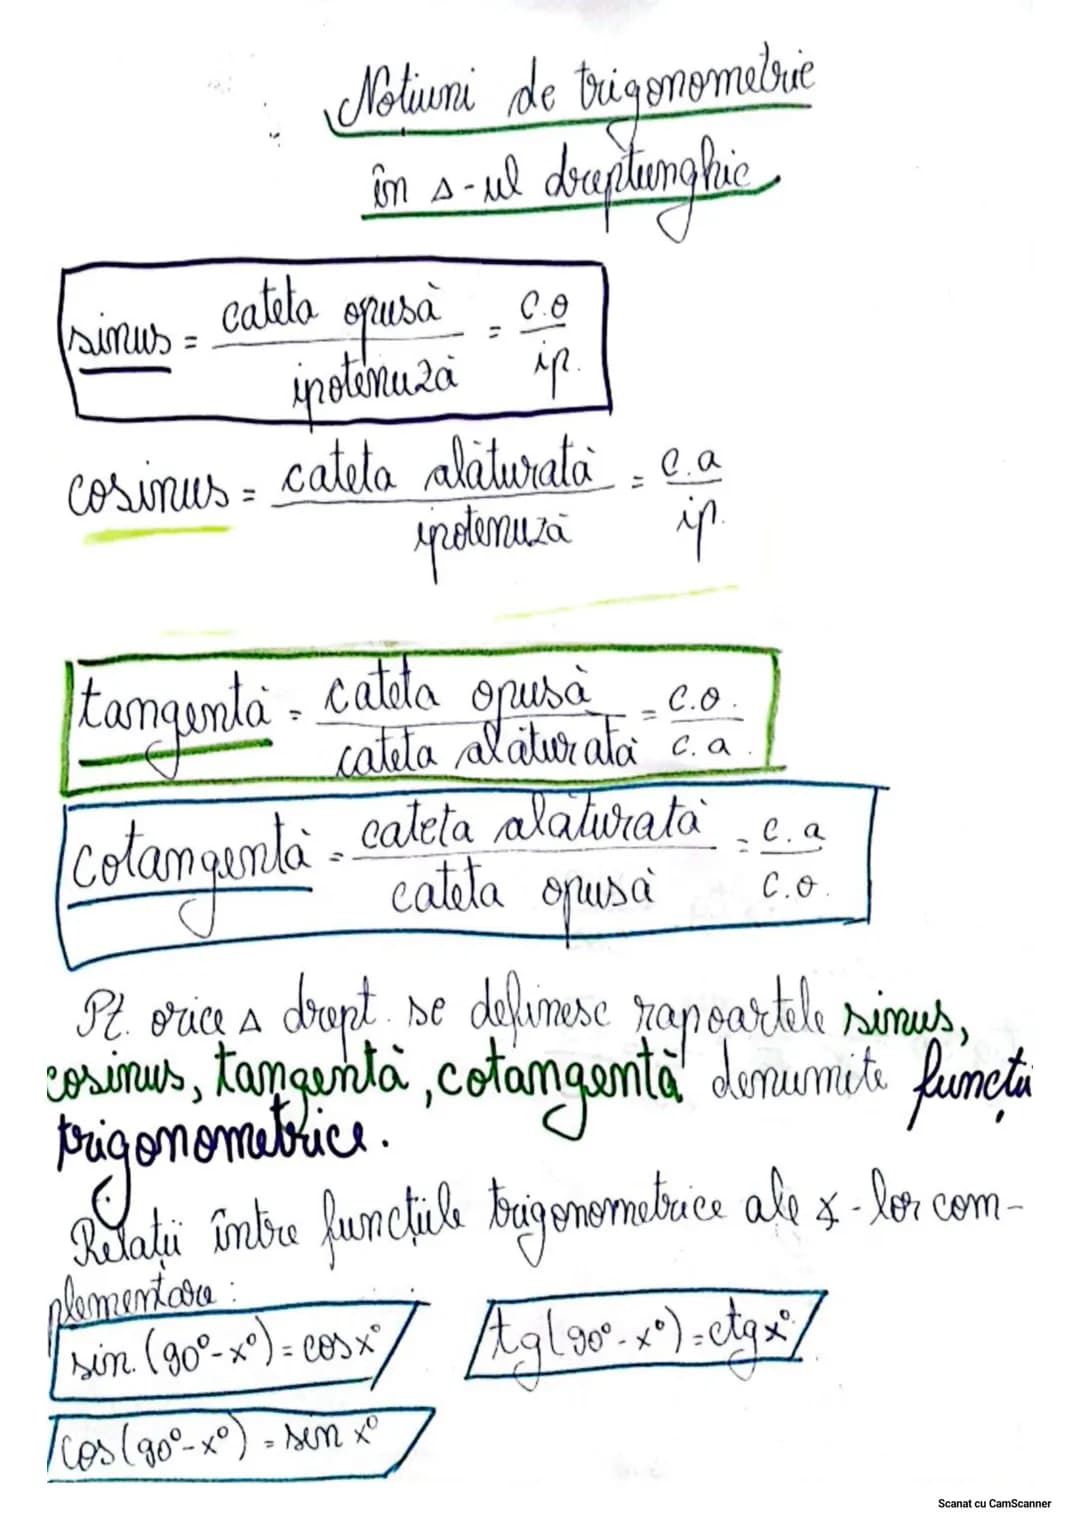 Noțiuni de trigonometrie
în Δ-ul dreptunghic
sinus = cateta opusă / ipotenuză = c.o / ip.
cosinus = cateta alăturată / ipotenuză = c.a / ip.
tangentă = cateta opusă / cateta alăturată = c.o. / c.a.
cotangentă = cateta alăturată / cateta opusă = c.a / c.o.
Pt. orice Δ drept. se definesc rapoartele sinus,
cosinus, tangentă, cotangentă denumite funcții
trigonometrice.
Relații între funcțiile trigonometrice ale ∢-lor com-
plementare:
sin. (90°-x°) = cos x°
tg(90°-x°) = ctg x°
cos(90°-x°) = sin x°
Scanat cu CamScanner